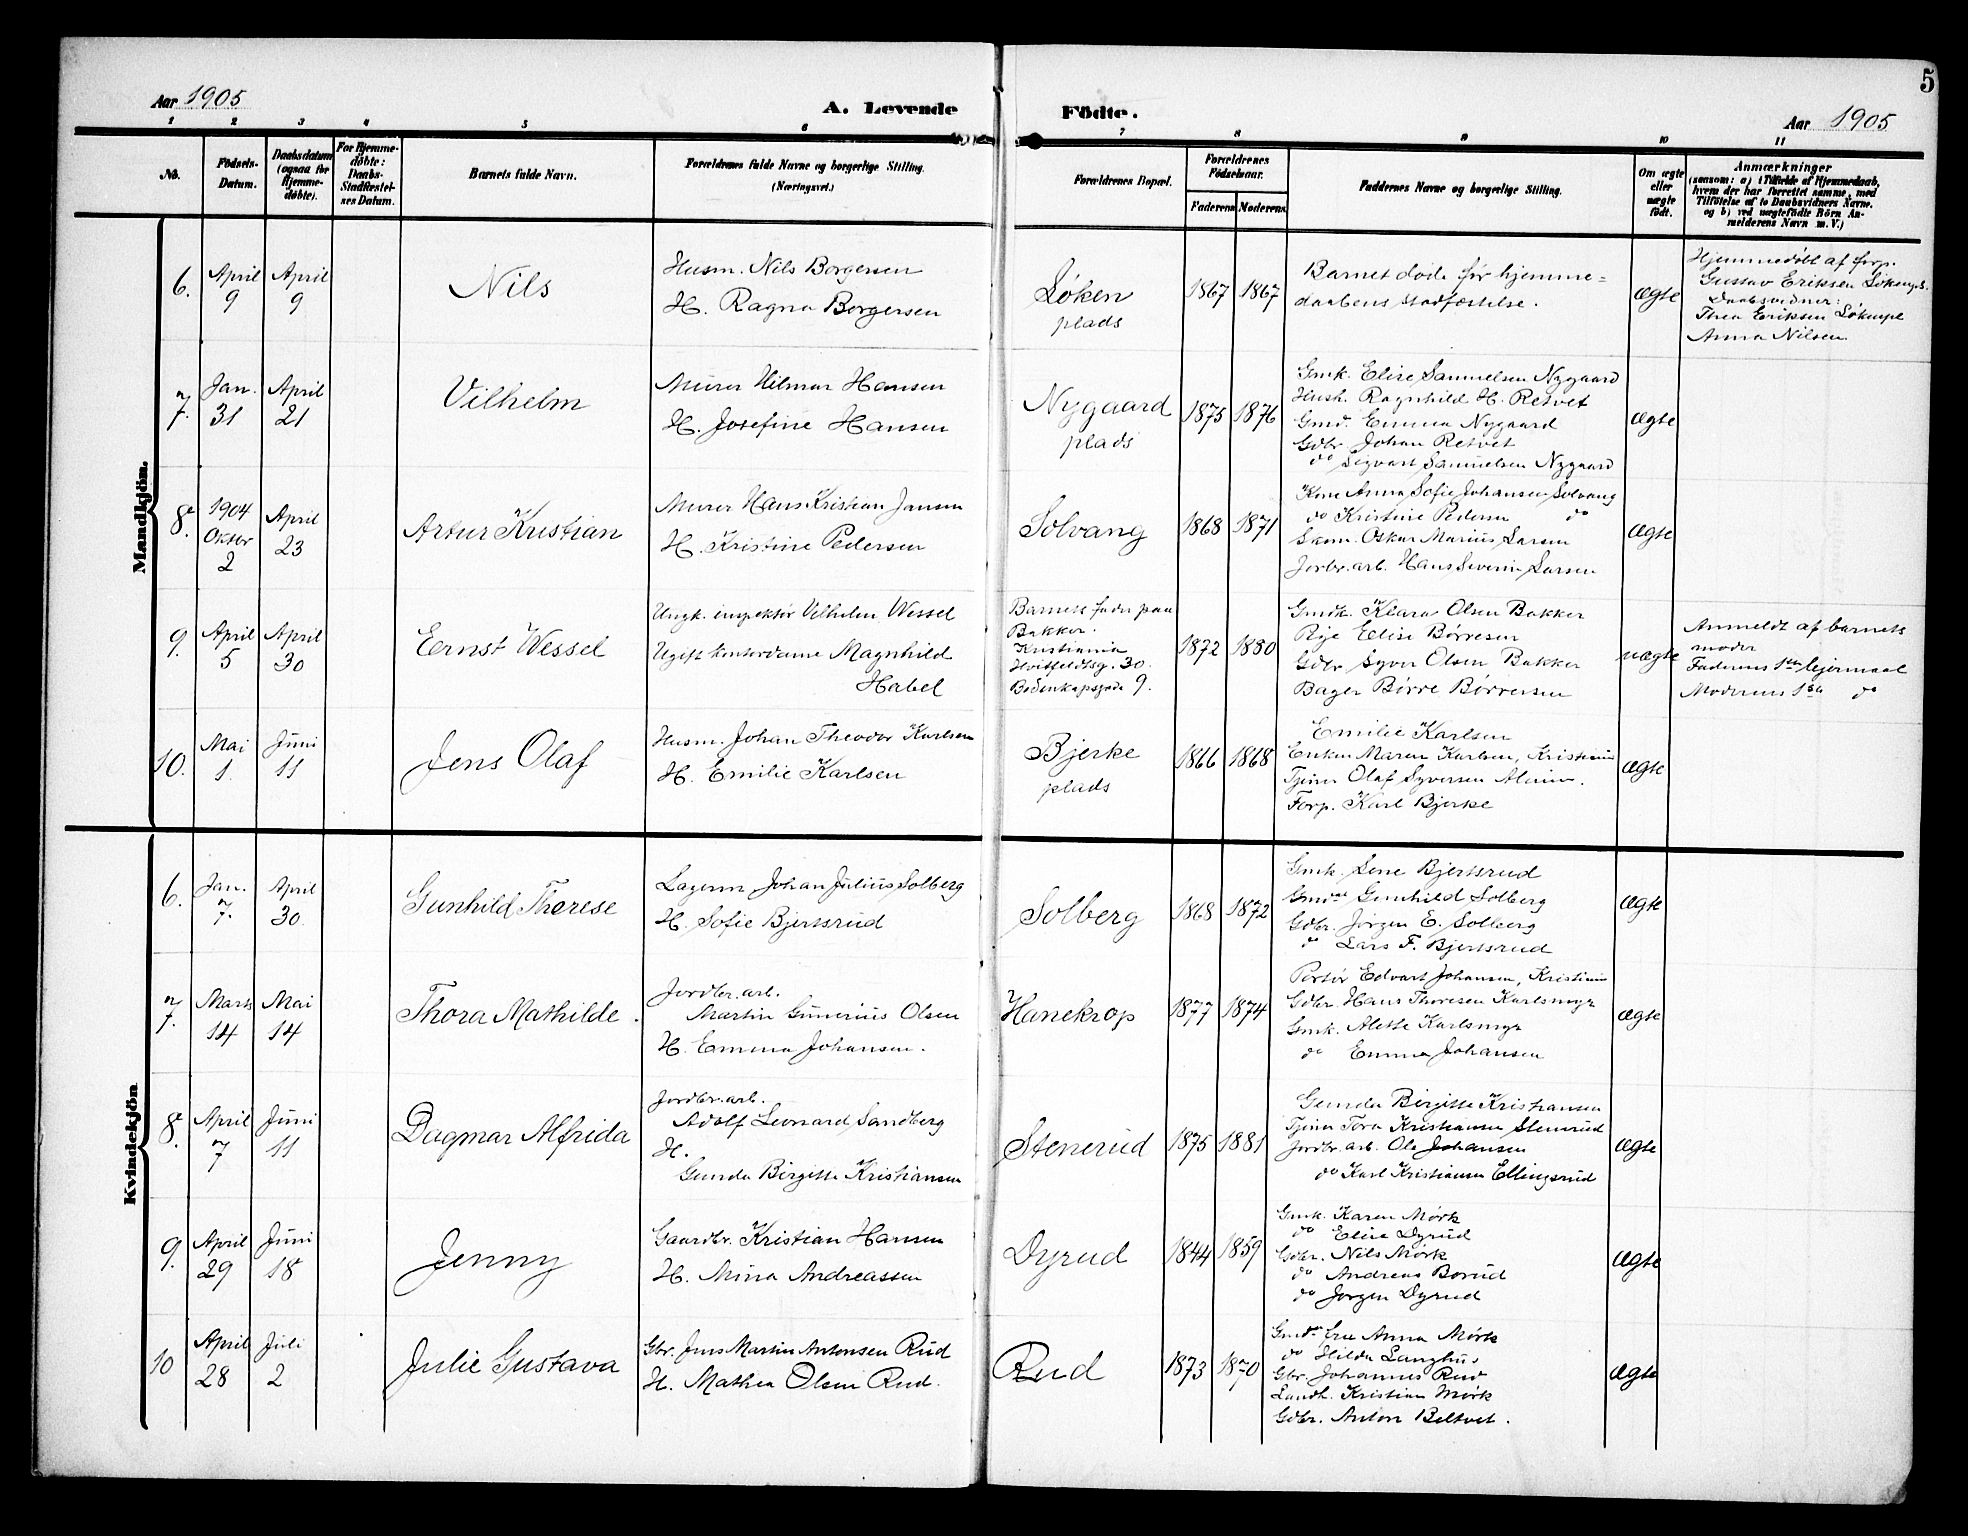 5
Aar 1905
A. Levende
Födte.
Aar 1905
1 2 3 4 5 6 7 8 9 10 11
No.
Födsels-
Datum.
Daabsdatum
(ogsaa for
Hjemme-
døbte).
For Hjemme-
døbte:
Daabs-
Stadfæstel-
ses Datum.
Barnets fulde Navn.
Forældrenes fulde Navne og borgerlige Stilling.
(Næringsvei.)
Forældrenes Bopæl.
Forældrenes
Födselsaar.
Faderens
Moderens
Faddernes Navne og borgerlige Stilling.
Om ægte
eller
uægte
födt.
Anmærkninger
(saasom: a) i Tilfælde af Hjemmedaab,
hvem der har forrettet samme, med
Tilföielse af to Daabsvidners Navne,
og b) ved uægtefödte Börn An-
melderens Navn m. V.)
Mandkjön.
6.
April
9
April
9
Nils
Husm. Nils Borgersen
H. Ragna Borgersen
Løken
plads
1867
1867
Barnet døde før hjemme-
daabens stadfæstelse.
ægte
Hjemmedøbt af forp.
Gustav Eriksen Løkenpl.
Daabsvidner:
Thea Eriksen Løkenpl
Anna Nilsen
7.
Jan.
31
April
21
Vilhelm
Murer Hilmar Hansen
H. Josefine Hansen
Nygaard
plads
1875
1876
Gmk. Elise Samuelsen Nygaard
Hush. Ragnhild H. Retvet
Gmd. Emma Nygaard
Gdbr. Johan Retvet
do Sigvart Samuelsen Nygaard
ægte
8.
1904
Oktbr
2
April
23
Artur Kristian
Murer Hans Kristian Jansen
H. Kristine Pedersen
Solvang
1868
1871
Kone Anna Sofie Johansen Solvang
do Kristine Pedersen do
Skom. Oskar Marius Larsen
Jorbr. arb. Hans Severin Larsen
ægte
9.
April
5
April
30
Ernst Wessel
Ungk. inspektør Vilhelm Wessel
Ugift kontordame Magnhild
Habel
Barnets fader paa
Bakker.
Kristiania
Hvitfeldtsg. 30.
9.
1872
1880
Gmdk. Klara Olsen Bakker
Pige Elise Børresen
Gdbr Syver Olsen Bakker
Bager Børre Børresen
uægte
Anmeldt af barnets
moder
Faderens 1ste leiermaal
Moderens 1ste do
10.
Mai
1.
Juni
11
Jens Olaf
Husm. Johan Theodor Karlsen
H. Emilie Karlsen
Bjerke
plads
1866
1868
Emilie Karlsen
Enken Maren Karlsen, Kristiania
Tjener Olaf Syversen
Forp. Karl Bjerke
ægte
Kvindekjön
6.
Jan.
7.
April
30
Gunhild Therese
Lagerm Johan Julius Solberg
H. Sofie Bjertsrud
Solberg
1868
1872
Gmk. Lene Bjertsrud
Gmdat Gunhild Solberg
Gdbr. Jørgen E. Solberg
do Lars F. Bjertsrud
ægte
7.
Marts
14
Mai
14
Thora Mathilde.
Jordbr. arb.
Martin Gunerius Olsen
H. Emma Johansen.
Hanekrop
1877
1874
Portør Edvart Johansen, Kristiania
Gdbr. Hans Thoresen Karlsmyr
Gmk. Alette Karlsmyr
do Emma Johansen
ægte
8.
April
7
Juni
11
Dagmar Alfrida
Jordbr. arb.
Adolf Leonard Sandberg
H.
Gunda Birgitte Kristiansen
Stenerud
1875
1881
Gunda Birgitte Kristiansen
Tjener Tora Kristiansen Stenerud
Jordbr. arb. Ole Johansen
do Karl Kristiansen Ellingsrud
ægte
9.
April
29
Juni
18
Jenny
Gaardbr. Kristian Hansen
H. Mina Andreassen
Dyrud
1844
1859
Gmk. Karen Mørk
do Elise Dyrud
Gdbr. Nils Mørk
do Andreas Borud
do Jørgen Dyrud
ægte
10
April
28
Juli
2
Julie Gustava
Gbr. Jens Martin Antonsen Rud
H. Mathea Olsen Rud.
Rud
1873
1870
Anna Mørk
do Hilda Langhus
Gbr. Johannes Rud
Landh. Kristian Mørk
Gdbr. Anton Beltvet.
ægte